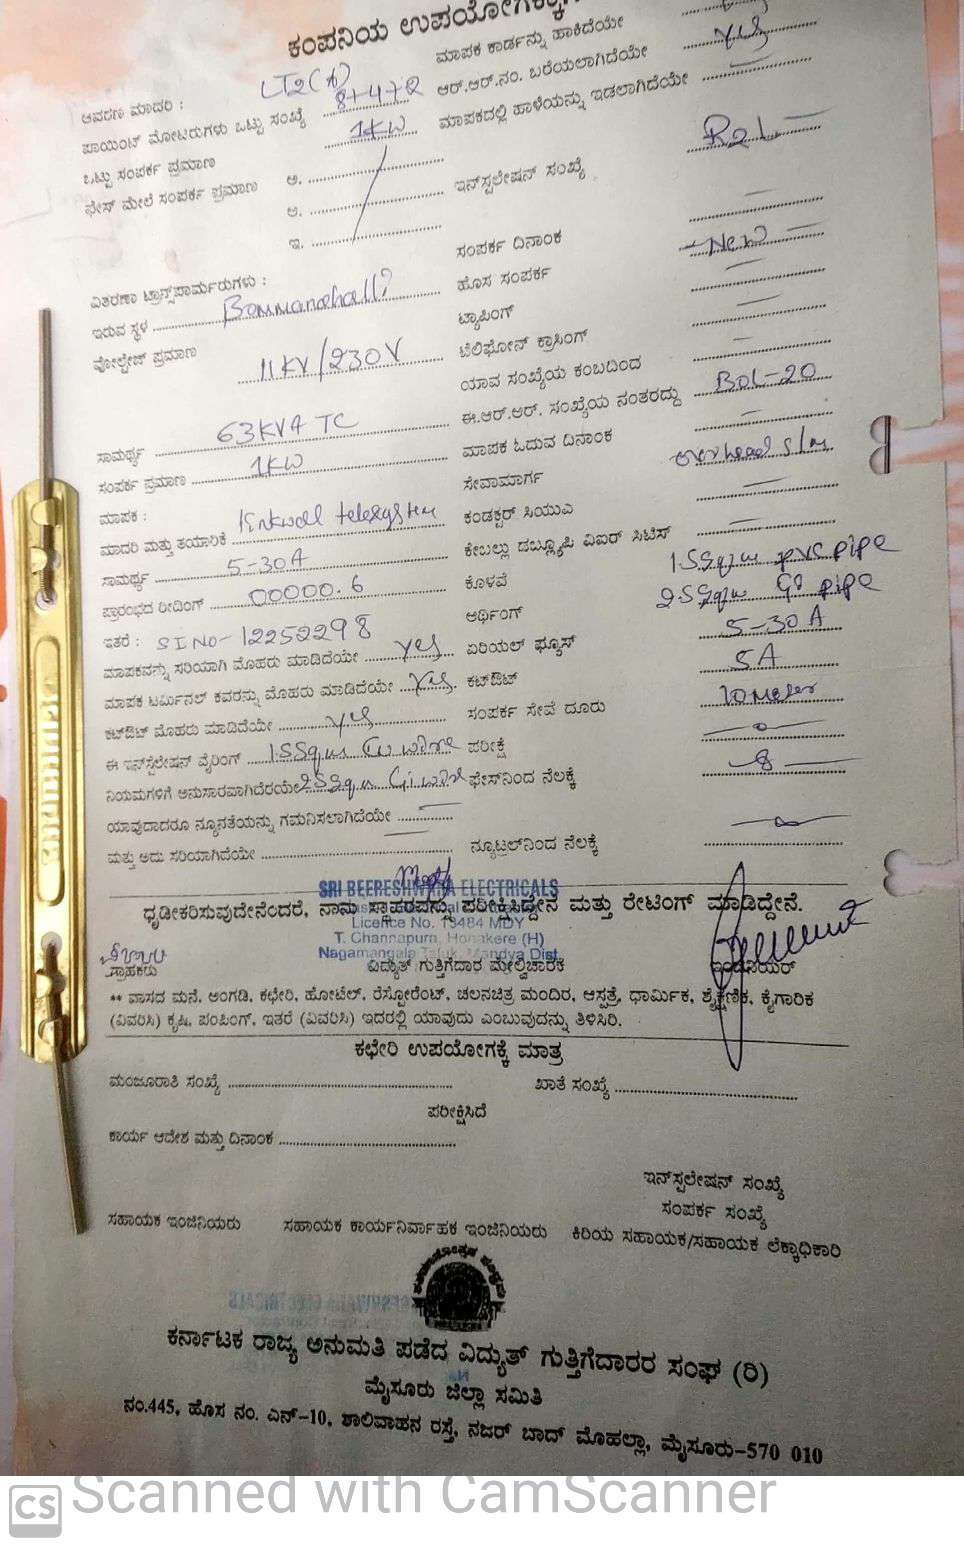 ಕಂಪನಿಯ
ಮಾಪಕ ಕಾರ್ಡನ್ನು ಹಾಕಿದೆಯೇ
ಆವರಣ ಮಾದರಿ : LT2(A) ಆರ್.ಆರ್.ನಂ. ಬರೆಯಲಾಗಿದೆಯೇ Yes
ಪಾಯಿಂಟ್ ಮೋಟಾರುಗಳು ಒಟ್ಟು ಸಂಖ್ಯೆ 8+4+2 ಮಾಪಕದಲ್ಲಿ ಹಾಳೆಯನ್ನು ಇಡಲಾಗಿದೆಯೇ
ಒಟ್ಟು ಸಂಪರ್ಕ ಪ್ರಮಾಣ 1KW
ಫೇಸ್ ಮೇಲೆ ಸಂಪರ್ಕ ಪ್ರಮಾಣ ಅ. ಇನ್‌ಸ್ಟಲೇಷನ್ ಸಂಖ್ಯೆ
ಆ.
ಇ. ಸಂಪರ್ಕ ದಿನಾಂಕ
ವಿತರಣಾ ಟ್ರಾನ್ಸ್‌ಪಾರ್ಮರುಗಳು : ಹೊಸ ಸಂಪರ್ಕ New
ಇರುವ ಸ್ಥಳ Bommanahalli ಟ್ಯಾಪಿಂಗ್
ವೋಲ್ಟೇಜ್ ಪ್ರಮಾಣ 11KV/230V ಟೆಲಿಫೋನ್ ಕ್ರಾಸಿಂಗ್
ಯಾವ ಸಂಖ್ಯೆಯ ಕಂಬದಿಂದ
ಸಾಮರ್ಥ್ಯ 63KVA TC ಈ.ಆರ್.ಆರ್. ಸಂಖ್ಯೆಯ ನಂತರದ್ದು BOL-20
ಸಂಪರ್ಕ ಪ್ರಮಾಣ 1KW ಮಾಪಕ ಓದುವ ದಿನಾಂಕ
ಮಾಪಕ : ಸೇವಾಮಾರ್ಗ overhead
ಮಾದರಿ ಮತ್ತು ತಯಾರಿಕೆ telesystem ಕಂಡಕ್ಟರ್ ಸಿಯುವಿ
ಸಾಮರ್ಥ್ಯ 5-30A ಕೇಬಲ್ಲು ಡಬ್ಲ್ಯೂಪಿ ವಿಐರ್ ಸಿಟಿಸ್
ಪ್ರಾರಂಭದ ರೀಡಿಂಗ್ 00000.6 ಕೊಳವೆ 1.5Sqm PVC PIPE
ಇತರೆ : SI NO-12252298 ಆರ್ಥಿಂಗ್ 2.5Sqm GI PIPE
ಮಾಪಕವನ್ನು ಸರಿಯಾಗಿ ಮೊಹರು ಮಾಡಿದೆಯೇ Yes ಏರಿಯಲ್ ಫ್ಯೂಸ್ 5-30A
ಮಾಪಕ ಟರ್ಮಿನಲ್ ಕವರನ್ನು ಮೊಹರು ಮಾಡಿದೆಯೇ Yes. ಕಟ್‌ಔಟ್ 5A
ಕಟ್‌ಔಟ್ ಮೊಹರು ಮಾಡಿದೆಯೇ yes ಸಂಪರ್ಕ ಸೇವೆ ದೂರು 10 Meter
ಈ ಇನ್‌ಸ್ಟೆಲೇಷನ್ ವೈರಿಂಗ್ 1.5Sqm Cu wire ಪರೀಕ್ಷೆ
ನಿಯಮಗಳಿಗೆ ಅನುಸಾರವಾಗಿದೆರಯೇ 2.5Sqm Gi wire ಫೇಸ್‌ನಿಂದ ನೆಲಕ್ಕೆ
ಯಾವುದಾದರೂ ನ್ಯೂನತೆಯನ್ನು ಗಮನಿಸಲಾಗಿದೆಯೇ
ಮತ್ತು ಅದು ಸರಿಯಾಗಿದೆಯೇ ನ್ಯೂಟ್ರಲ್‌ನಿಂದ ನೆಲಕ್ಕೆ
SRI BEERESHWARA ELECTRICALS
ಧೃಡೀಕರಿಸುವುದೇನೆಂದರೆ, ನಾವು ಸ್ಥಾವರವನ್ನು ಪರೀಕ್ಷಿಸಿದ್ದೇನೆ ಮತ್ತು ರೇಟಿಂಗ್ ಮಾಡಿದ್ದೇನೆ.
Licence No. 13484 MDY
T. Channapura, Honakere (H)
Nagamangala Taluk, Mandya Dist.
ಗ್ರಾಹಕರು ವಿದ್ಯುತ್ ಗುತ್ತಿಗೆದಾರ ಮೇಲ್ವಿಚಾರಕ ಇಂಜಿನಿಯರ್
** ವಾಸದ ಮನೆ, ಅಂಗಡಿ, ಕಛೇರಿ, ಹೋಟೆಲ್, ರೆಸ್ಟೋರೆಂಟ್, ಚಲನಚಿತ್ರ ಮಂದಿರ, ಆಸ್ಪತ್ರೆ, ಧಾರ್ಮಿಕ, ಶೈಕ್ಷಣಿಕ, ಕೈಗಾರಿಕ
(ವಿವರಿಸಿ) ಕೃಷಿ, ಪಂಪಿಂಗ್, ಇತರೆ (ವಿವರಿಸಿ) ಇದರಲ್ಲಿ ಯಾವುದು ಎಂಬುವುದನ್ನು ತಿಳಿಸಿರಿ.
ಕಛೇರಿ ಉಪಯೋಗಕ್ಕೆ ಮಾತ್ರ
ಮಂಜೂರಾತಿ ಸಂಖ್ಯೆ ಖಾತೆ ಸಂಖ್ಯೆ
ಪರೀಕ್ಷಿಸಿದೆ
ಕಾರ್ಯ ಆದೇಶ ಮತ್ತು ದಿನಾಂಕ
ಇನ್‌ಸ್ಟಲೇಷನ್ ಸಂಖ್ಯೆ
ಸಂಪರ್ಕ ಸಂಖ್ಯೆ
ಸಹಾಯಕ ಇಂಜಿನಿಯರು ಸಹಾಯಕ ಕಾರ್ಯನಿರ್ವಾಹಕ ಇಂಜಿನಿಯರು ಕಿರಿಯ ಸಹಾಯಕ/ಸಹಾಯಕ ಲೆಕ್ಕಾಧಿಕಾರಿ
ಕರ್ನಾಟಕ ರಾಜ್ಯ ಅನುಮತಿ ಪಡೆದ ವಿದ್ಯುತ್ ಗುತ್ತಿಗೆದಾರರ ಸಂಘ (ರಿ)
ಮೈಸೂರು ಜಿಲ್ಲಾ ಸಮಿತಿ
ನಂ.445, ಹೊಸ ನಂ. ಎನ್-10, ಶಾಲಿವಾಹನ ರಸ್ತೆ, ನಜರ್ ಬಾದ್ ಮೊಹಲ್ಲಾ, ಮೈಸೂರು-570 010
CS Scanned with CamScanner